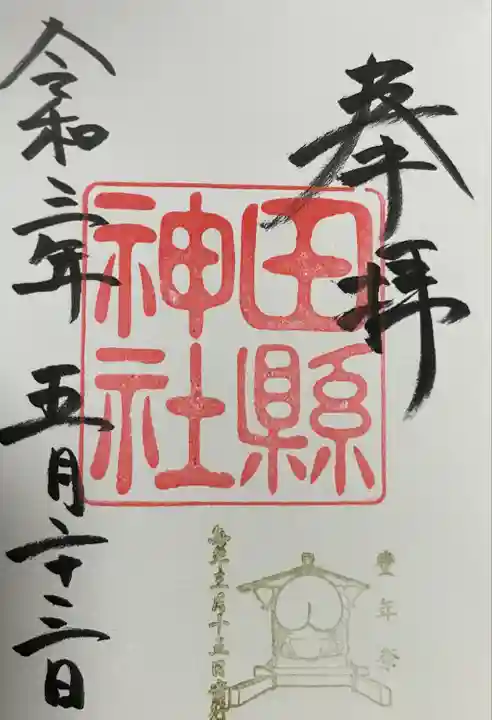 奉拝
田縣
神社
豊年祭
毎年三月十五日
令和三年 五月二十三日